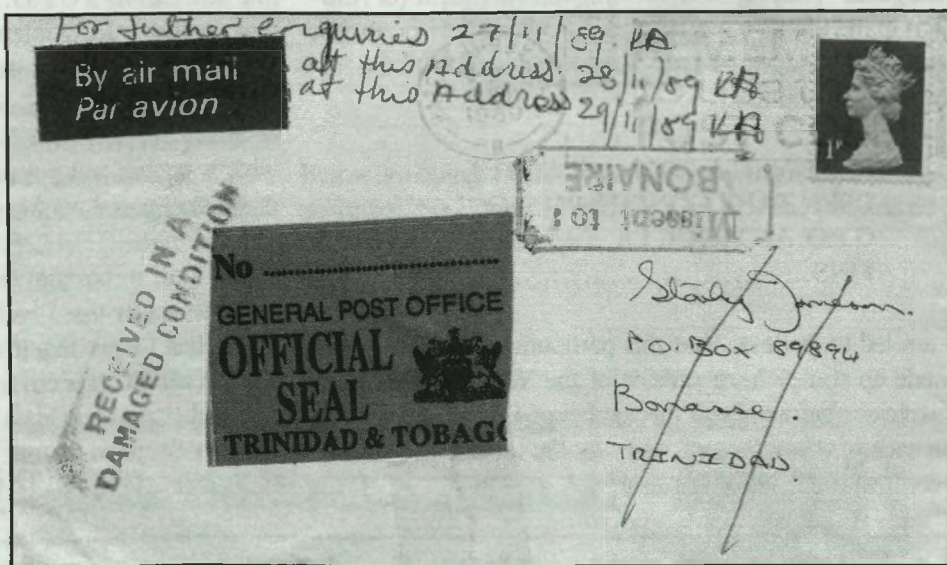 For futher enquiries 27/11/89 KA
at this Address. 28/11/89 KA
at this Address 29/11/89 KA
By air mail
Par avion
Missent to:
BONAIRE
RECEIVED IN A
DAMAGED CONDITION
No
GENERAL POST OFFICE
OFFICIAL
SEAL
TRINIDAD & TOBAGO
P.O. BOX 89894
Bonasse.
TRINIDAD.